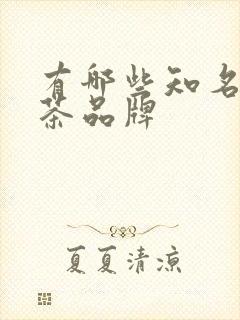 有哪些知名
茶品牌
夏夏清凉